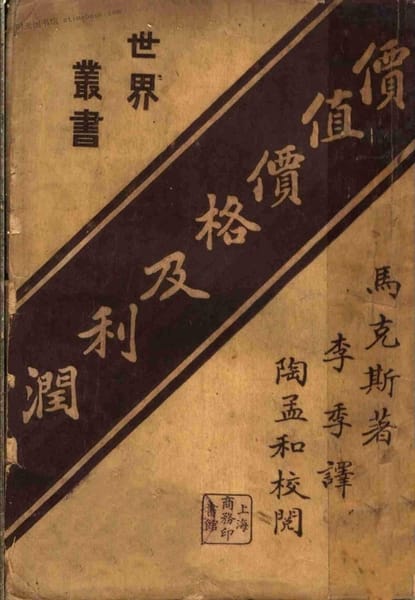 世界
叢書
價值價格及利潤
馬克斯著
李季譯
陶孟和校閱
上海
商務印
書館